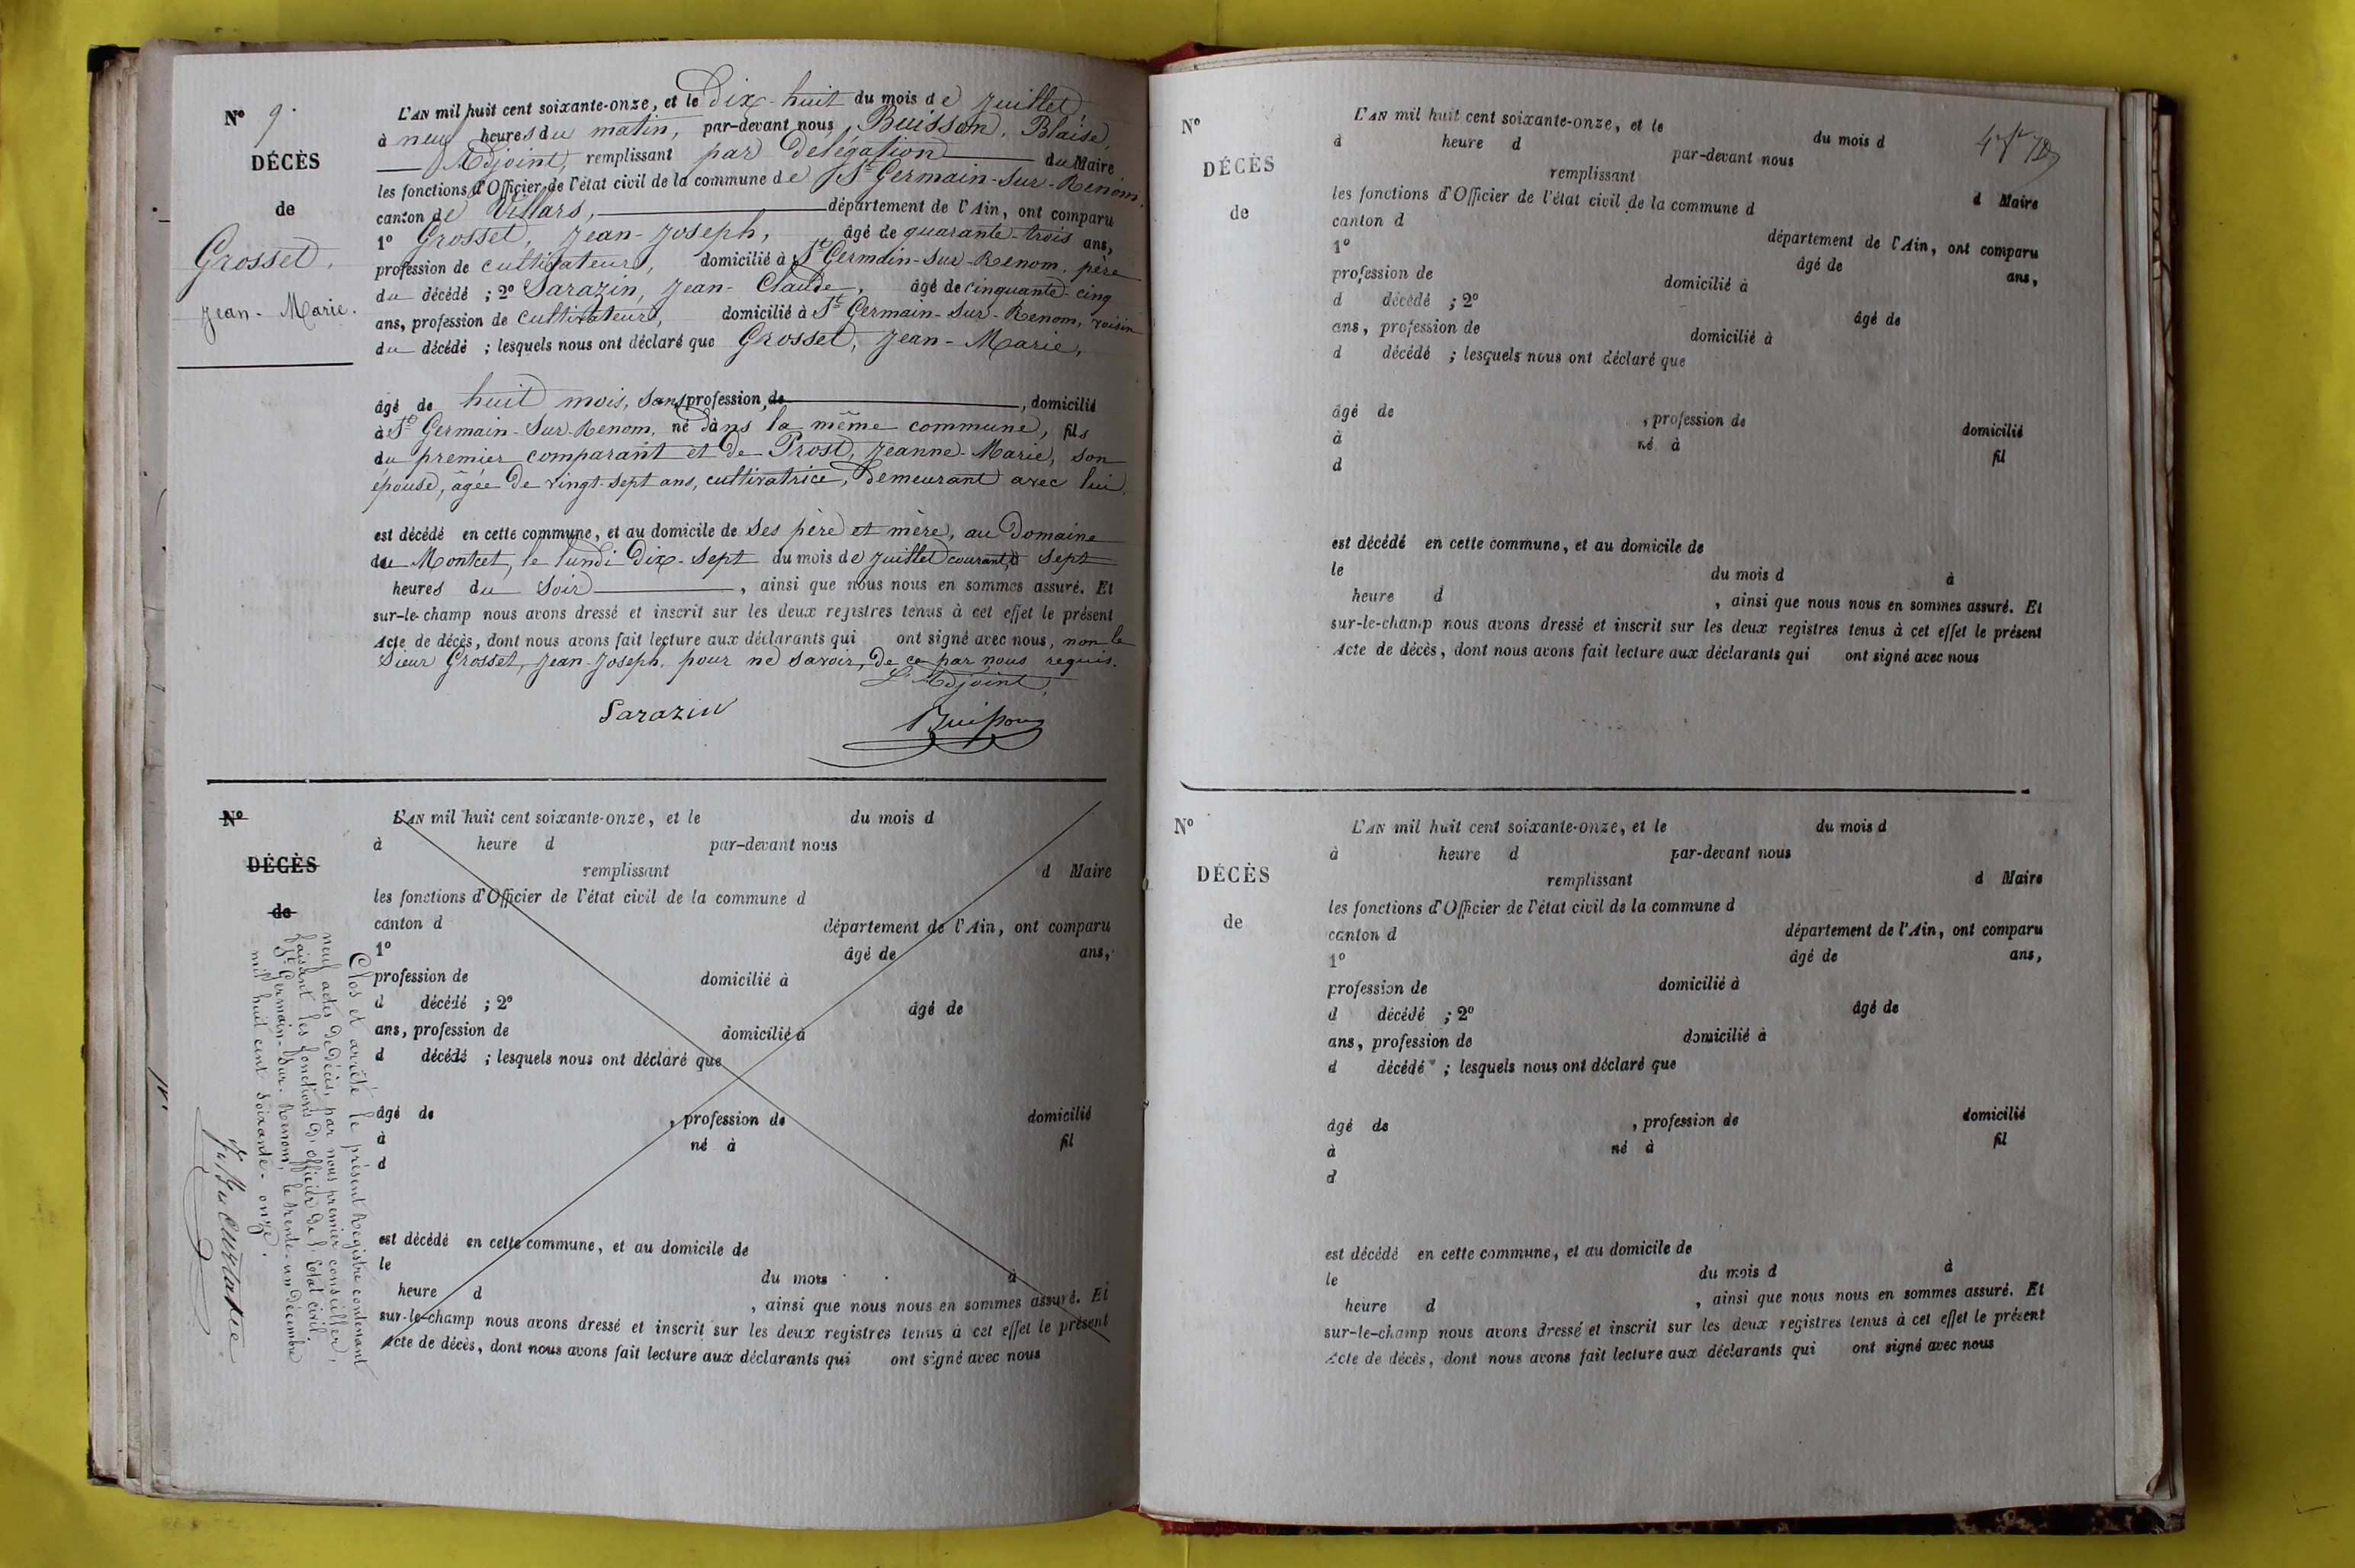 N° 9.
DÉCÈS
de
Grosset,
Jean-Marie.
L'AN mil huit cent soixante-onze, et le Dix-huit du mois de Juillet
à neuf heures du matin, par-devant nous, Buisson, Blaise,
Adjoint, remplissant par Délégation du Maire
les fonctions d'Officier de l'état civil de la commune de St Germain-sur-Renom,
canton de Villars, département de l'Ain, ont comparu
1° Grosset, Jean-Joseph, âgé de quarante-trois ans,
profession de cultivateur, domicilié à St Germain-sur-Renom, père
du décédé ; 2° Sarazin, Jean-Claude, âgé de cinquante-cinq
ans, profession de cultivateur, domicilié à St Germain-sur-Renom, voisin
du décédé ; lesquels nous ont déclaré que Grosset, Jean-Marie,
âgé de huit mois, sans profession, de , domicilié
à St Germain-sur-Renom, né dans la même commune, fils
du premier comparant et de Prost, Jeanne-Marie, son
épouse, âgée de vingt-sept ans, cultivatrice, Demeurant avec lui,
est décédé en cette commune, et au domicile de ses père et mère, au Domaine
du Montcet, le lundi Dix-sept du mois de Juillet courant, à sept
heures du soir , ainsi que nous nous en sommes assuré. Et
sur-le-champ nous avons dressé et inscrit sur les deux registres tenus à cet effet le présent
Acte de décès, dont nous avons fait lecture aux déclarants qui ont signé avec nous, non le
Sieur Grosset, Jean-Joseph, pour ne savoir, de ce par nous requis.
L'Adjoint,
Sarazin Buisson
N°
DÉCÈS
de
L'AN mil huit cent soixante-onze, et le du mois d
à heure d par-devant nous
remplissant d Maire
les fonctions d'Officier de l'état civil de la commune d
canton d département de l'Ain, ont comparu
1° âgé de ans,
profession de domicilié à
d décédé ; 2° âgé de
ans, profession de domicilié à
d décédé ; lesquels nous ont déclaré que
âgé de , profession de domicilié
à né à fil
d
est décédé en cette commune, et au domicile de
le du mois à
heure d , ainsi que nous nous en sommes assuré. Et
sur-le-champ nous avons dressé et inscrit sur les deux registres tenus à cet effet le présent
Acte de décès, dont nous avons fait lecture aux déclarants qui ont signé avec nous
Clos et arrêté le présent Registre contenant
neuf actes de Décès, par nous premier conseiller,
faisant les fonctions d'officier de l'Etat civil,
St Germain-sur-Renom, le trente-un décembre
mil huit cent soixante-onze.
N°
DÉCÈS
de
L'AN mil huit cent soixante-onze, et le du mois d
à heure d par-devant nous
remplissant d Maire
les fonctions d'Officier de l'état civil de la commune d
canton d département de l'Ain, ont comparu
1° âgé de ans,
profession de domicilié à
d décédé ; 2° âgé de
ans, profession de domicilié à
d décédé ; lesquels nous ont déclaré que
âgé de , profession de domicilié
à né à fil
d
est décédé en cette commune, et au domicile de
le du mois d à
heure d , ainsi que nous nous en sommes assuré. Et
sur-le-champ nous avons dressé et inscrit sur les deux registres tenus à cet effet le présent
Acte de décès, dont nous avons fait lecture aux déclarants qui ont signé avec nous
N°
DÉCÈS
de
L'AN mil huit cent soixante-onze, et le du mois d
à heure d par-devant nous
remplissant d Maire
les fonctions d'Officier de l'état civil de la commune d
canton d département de l'Ain, ont comparu
1° âgé de ans,
profession de domicilié à
d décédé ; 2° âgé de
ans, profession de domicilié à
d décédé ; lesquels nous ont déclaré que
âgé de , profession de domicilié
à né à fil
d
est décédé en cette commune, et au domicile de
le du mois d à
heure d , ainsi que nous nous en sommes assuré. Et
sur-le-champ nous avons dressé et inscrit sur les deux registres tenus à cet effet le présent
Acte de décès, dont nous avons fait lecture aux déclarants qui ont signé avec nous